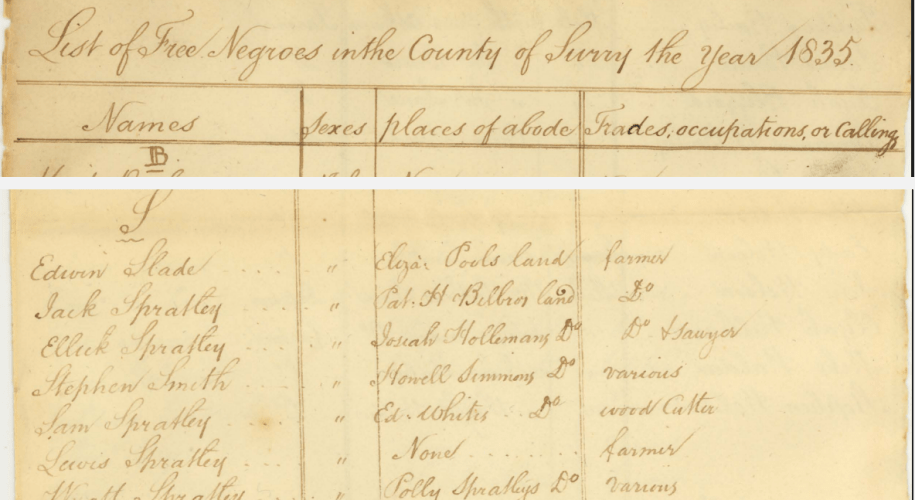 List of Free Negroes in the County of Surry the Year 1835.
Names Sexes places of abode Trades, occupations, or Callings
B
S
Edwin Slade .... " Eliza: Pools land farmer
Jack Spratley .... " Pat: H Bilbros land Do
Ellick Spratley .... " Josiah Hollemans Do Do & Sawyer
Stephen Smith .... " Howell Simmons Do various
Sam Spratley .... " Ed: Whites .. Do wood Cutter
Lewis Spratley .... " None ........ farmer
Wyatt Spratley .... " Polly Spratleys Do various